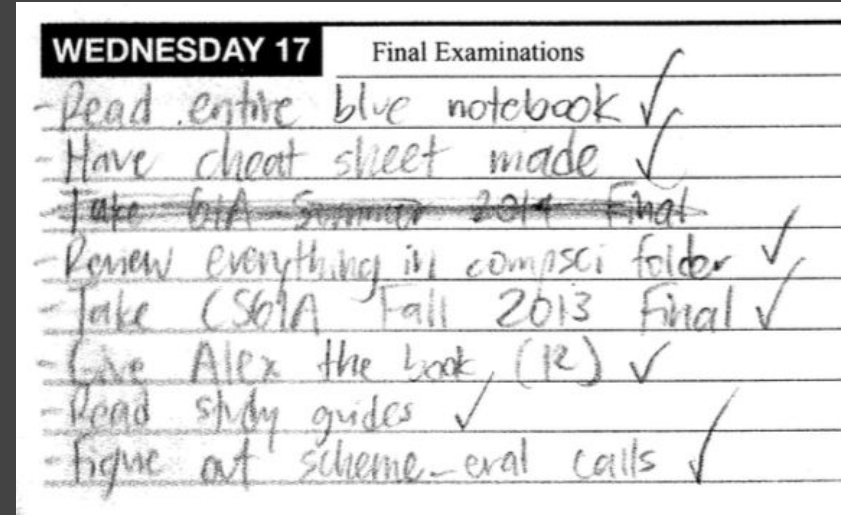 WEDNESDAY 17 Final Examinations
- Read entire blue notebook ✓
- Have cheat sheet made ✓
- Take 61A Summer 2014 Final
- Review everything in compsci folder ✓
- Take CS61A Fall 2013 Final ✓
- Give Alex the book (12) ✓
- Read study guides ✓
- Figure out scheme_eval calls ✓